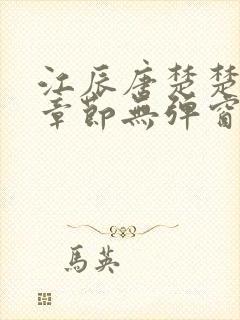 江辰唐楚楚
章節無彈窗
馬英